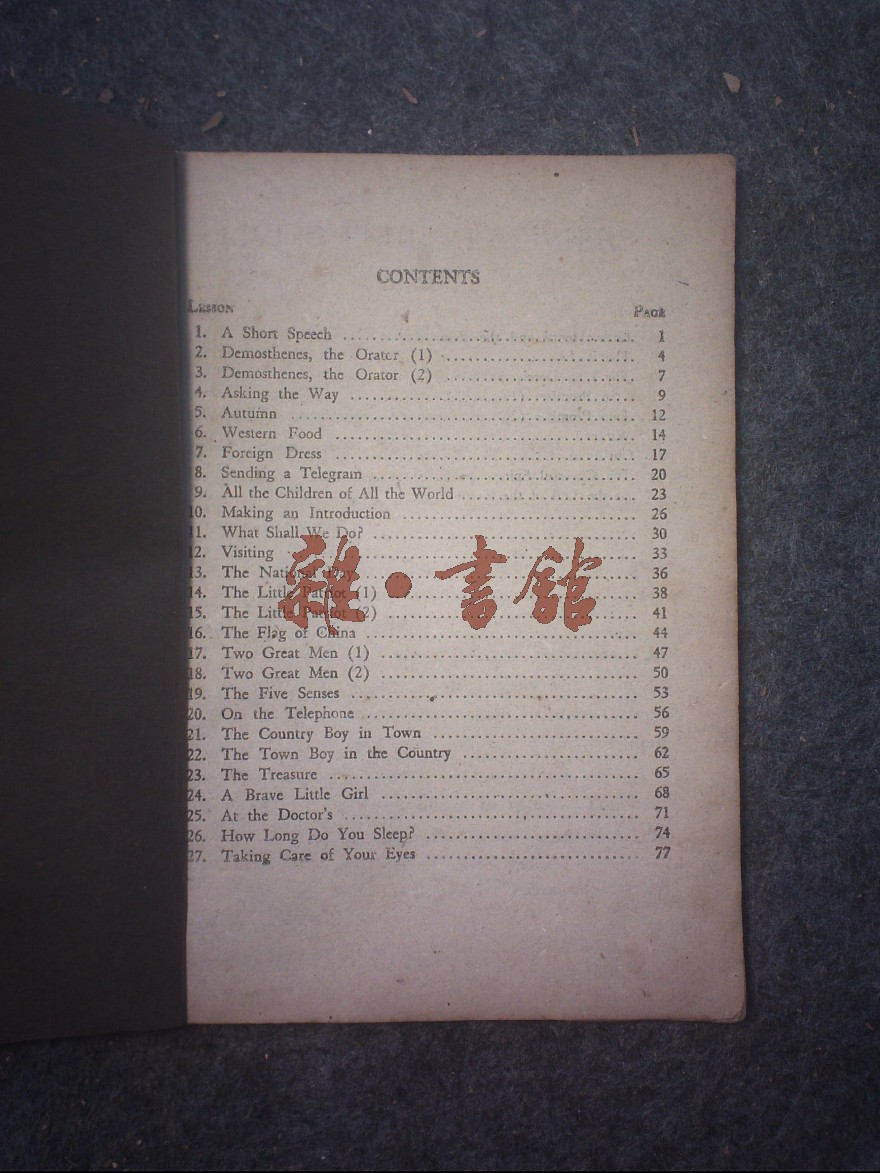 CONTENTS
LESSON PAGE
1. A Short Speech 1
2. Demosthenes, the Orator (1) 4
3. Demosthenes, the Orator (2) 7
4. Asking the Way 9
5. Autumn 12
6. Western Food 14
7. Foreign Dress 17
8. Sending a Telegram 20
9. All the Children of All the World 23
10. Making an Introduction 26
11. What Shall We Do? 30
12. Visiting 33
13. The National Day 36
14. The Little Patriot (1) 38
15. The Little Patriot (2) 41
16. The Flag of China 44
17. Two Great Men (1) 47
18. Two Great Men (2) 50
19. The Five Senses 53
20. On the Telephone 56
21. The Country Boy in Town 59
22. The Town Boy in the Country 62
23. The Treasure 65
24. A Brave Little Girl 68
25. At the Doctor's 71
26. How Long Do You Sleep? 74
27. Taking Care of Your Eyes 77
雜·書館